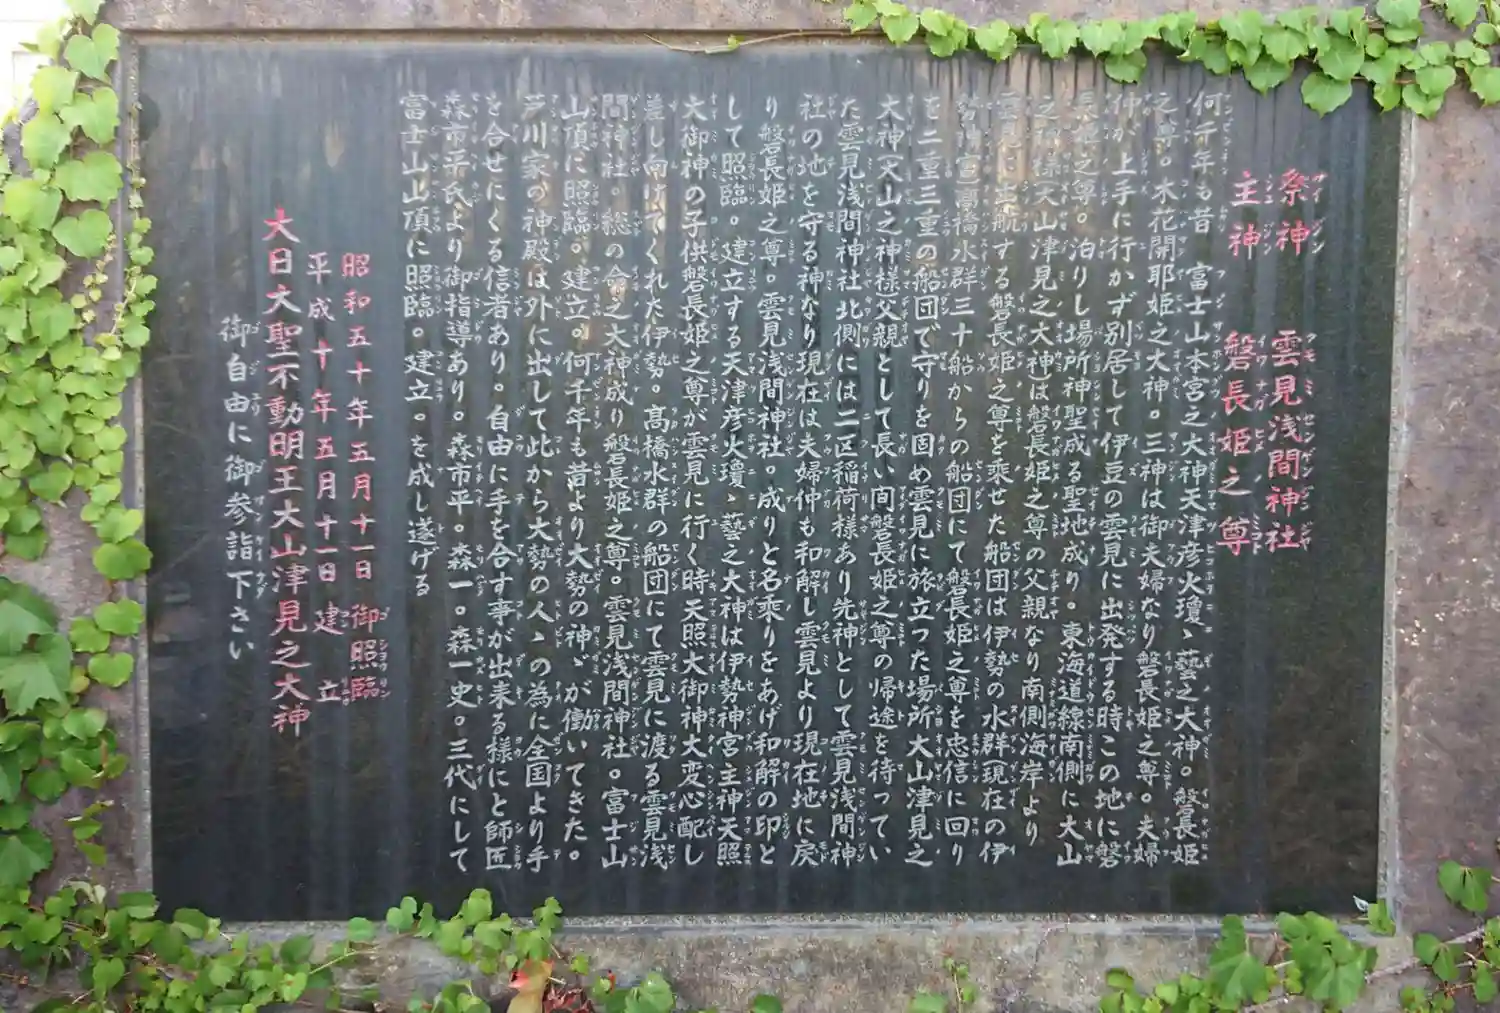 祭神 雲見浅間神社
主神 磐長姫之尊
何千年も昔 富士山本宮之大神天津彦火瓊〻藝之大神。磐長姫
之尊。木花開耶姫之大神。三神は御夫婦なり磐長姫之尊。夫婦
仲が上手に行かず別居して伊豆の雲見に出発する時この地に磐
長姫之尊。泊りし場所神聖成る聖地成り。東海道線南側に大山
之神様大山津見之大神は磐長姫之尊の父親なり南側海岸より
雲見に出航する磐長姫之尊を乗せた船団は伊勢の水群(現在の伊
勢神宮)高橋水群三十船からの船団にて磐長姫之尊を忠信に回り
を二重三重の船団で守りを固め雲見に旅立った場所大山津見之
大神(大山之神様父親)として長い間磐長姫之尊の帰途を待ってい
た雲見浅間神社北側には二区稲荷様あり先神として雲見浅間神
社の地を守る神なり現在は夫婦仲も和解し雲見より現在地に戻
り磐長姫之尊。雲見浅間神社。成りと名乗りをあげ和解の印と
して照臨。建立する天津彦火瓊〻藝之大神は伊勢神宮主神天照
大御神の子供磐長姫之尊が雲見に行く時天照大御神大変心配し
差し向けてくれた伊勢。高橋水群の船団にて雲見に渡る雲見浅
間神社。総の命之大神成り磐長姫之尊。雲見浅間神社。富士山
山頂に照臨。建立。何千年も昔より大勢の神〻が働いてきた。
芦川家の神殿は外に出して此から大勢の人〻の為に全国より手
を合せにくる信者あり。自由に手を合す事が出来る様にと師匠
森市平氏より御指導あり。森市平。森一。森一史。三代にして
富士山山頂に照臨。建立。を成し遂げる
昭和五十年五月十一日 御照臨
平成十年五月十一日 建立
大日大聖不動明王大山津見之大神
御自由に御参詣下さい